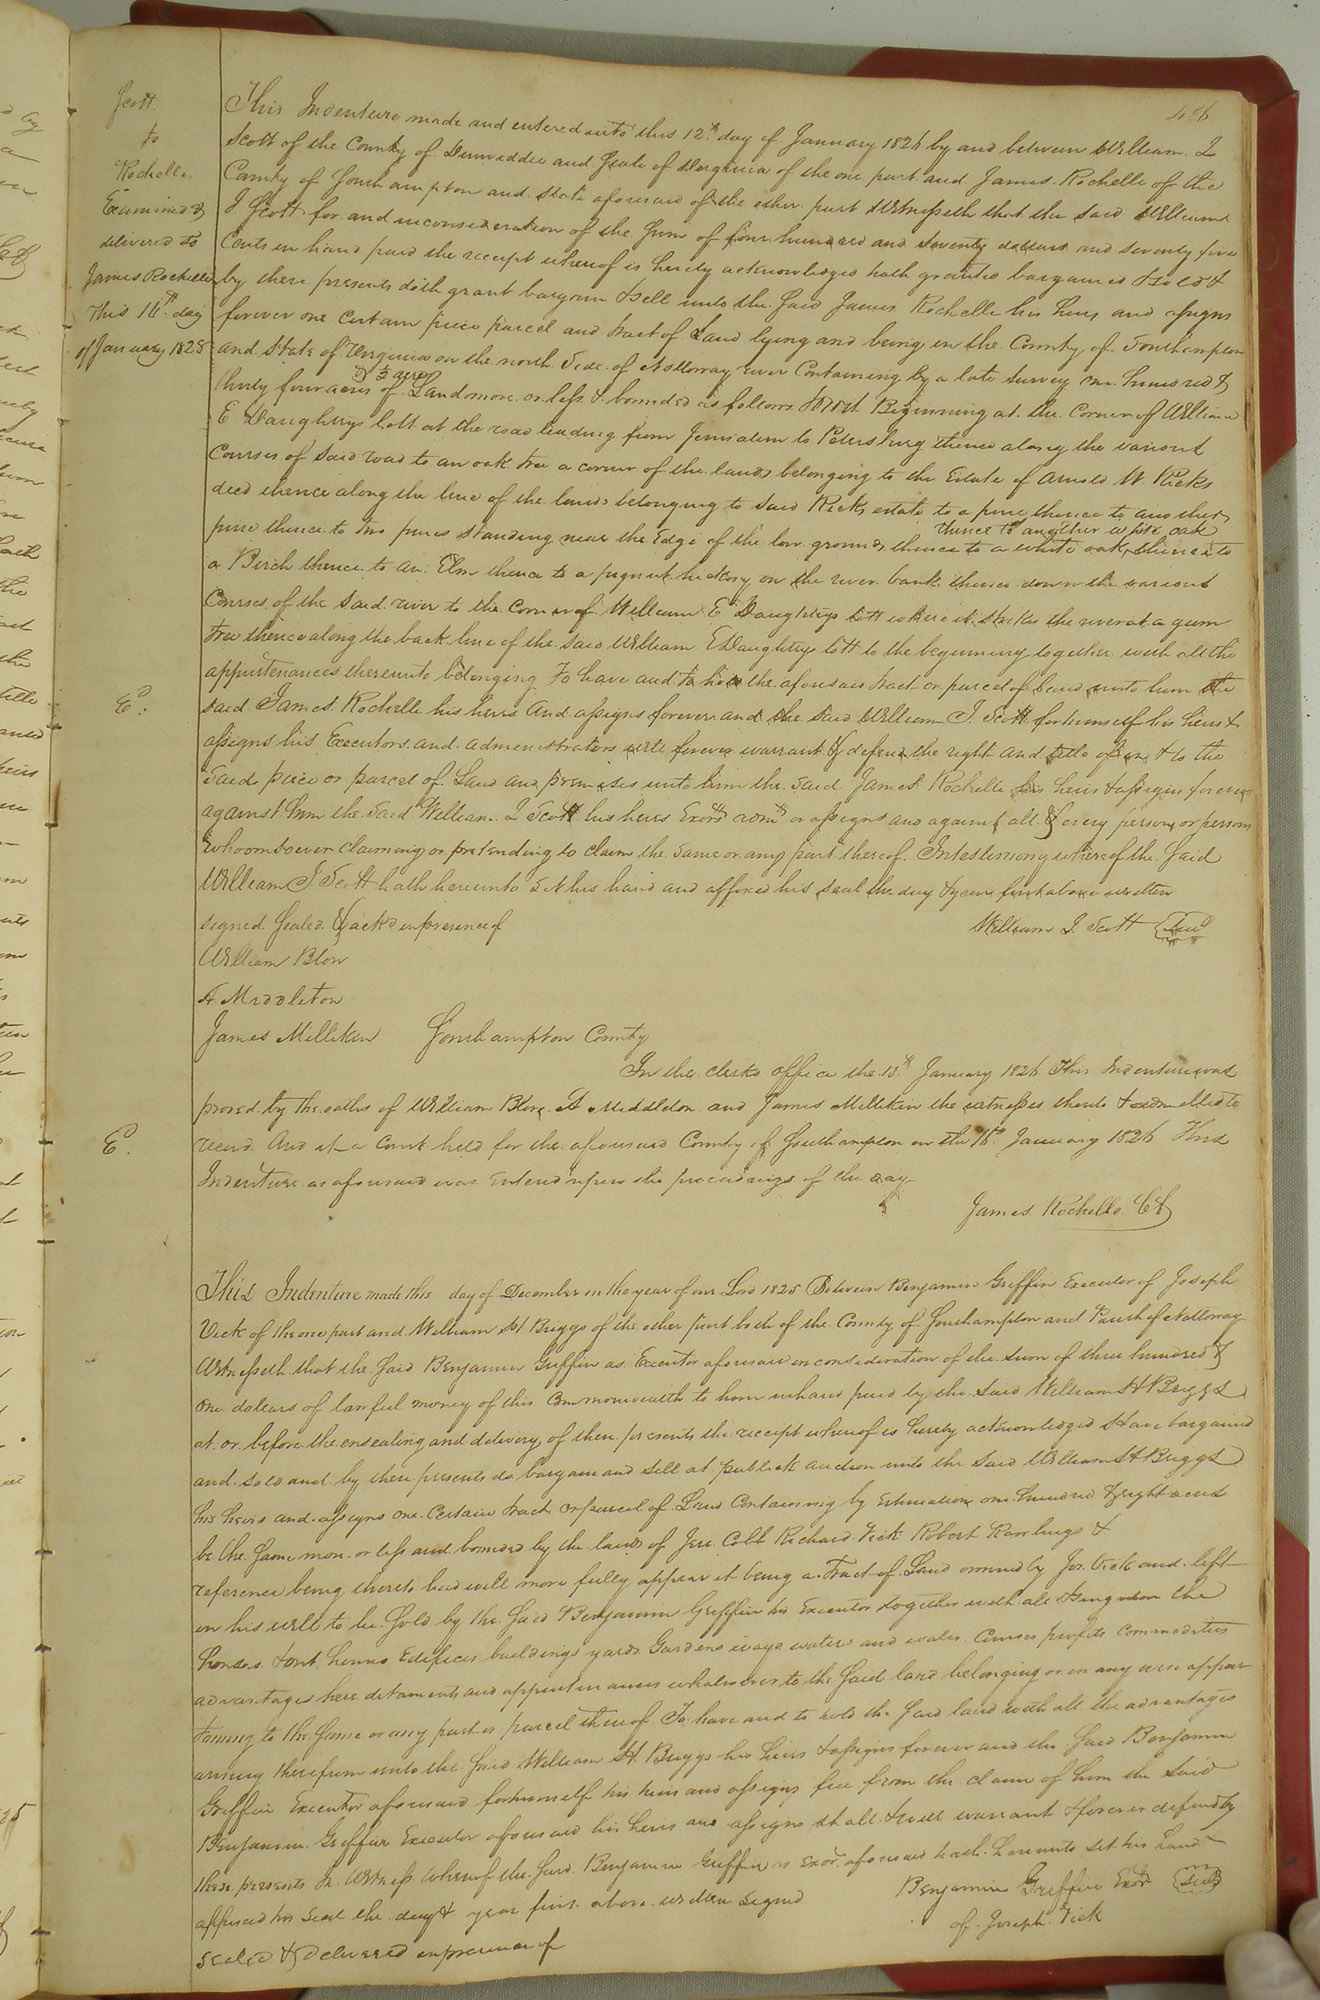 456
Scott
to
Rochelle
Examined &
delivered to
James Rochelle
this 16th day
of January 1828
This Indenture made and entered into this 12th day of January 1826 by and between William J
Scott of the County of Dinwiddie and State of Virginia of the one part and James Rochelle of the
County of Southampton and State aforesaid of the other part Witnesseth that the said William
J Scott for and in consideration of the Sum of four hundred and seventy dollars and seventy five
Cents in hand paid the receipt whereof is hereby acknowledged hath granted bargained & sold &
by these presents doth grant bargain & sell unto the said James Rochelle his heirs and assigns
forever one certain piece parcel and tract of Land lying and being in the County of Southampton
and State of Virginia on the north Side of Nottoway river Containing by a late survey one hundred &
& ½ acres
thirty four acres of Land more or less & bounded as follows Beginning at the Corner of William
E Daughtrys lott at the road leading from Jerusalem to Petersburg thence along the various
Courses of said road to an oak tree a corner of the lands belonging to the Estate of Arnold W Ricks
decd thence along the line of the lands belonging to said Ricks estate to a pine thence to another
thence to another white oak
pine thence to two pines standing near the edge of the low grounds thence to a white oak thence to
a Birch thence to an Elm thence to a pignut hickory on the river bank thence down the various
Courses of the said river to the Corner of William E Daughtrys lott where it strikes the river at a gum
tree thence along the back line of the said William E Daughtrys lott to the beginning together with all the
appurtenances thereunto belonging To have and to hold the aforesaid tract or parcel of land unto him the
E^d.
said James Rochelle his heirs and assigns forever and the said William J. Scott for himself his heirs &
assigns his Executors and administrators will forever warrant & defend the right and title of in & to the
said piece or parcel of Land and premises unto him the said James Rochelle his heirs & assigns forever
against him the said William J Scott his heirs Exors admrs or assigns and against all & every person or persons
whoomsoever claiming or pretending to claim the same or any part thereof. In testimony whereof the said
William J Scott hath hereunto set his hand and affixed his seal the day & year first above written
signed Sealed & ackd in presence of
William J. Scott Seal
William Blow
A Middleton
James Milliken Southampton County
In the clerks office the 13th January 1826 This Indenture was
proved by the oaths of William Blow A Middleton and James Milliken the witnesses thereto & admitted to
E.
record And at a Court held for the aforesaid County of Southampton on the 16th January 1826 This
Indenture as aforesaid was Entered upon the proceedings of the day
James Rochelle CC
This Indenture made this day of December in the year of our Lord 1825 Between Benjamin Griffin Executor of Joseph
Vick of the one part and William H Briggs of the other part both of the County of Southampton and Parish of Nottoway
Witnesseth that the said Benjamin Griffin as Executor aforesaid in consideration of the sum of three hundred &
one dollars of lawful money of this Commonwealth to him in hand paid by the said William H Briggs
at or before the ensealing and delivery of these presents the receipt whereof is hereby acknowledged Have bargained
and sold and by these presents do bargain and sell at publick auction unto the said William H Briggs
his heirs and assigns one Certain tract or parcel of Land Containing by Estimation one hundred & eight acres
be the same more or less and bounded by the lands of Jere Cobb Richard Vick Robert &
reference being thereto had will more fully appear it being a Tract of Land owned by Jos. Vick and left
in his will to be sold by the said Benjamin Griffin his Executor together with all & singular the
houses Edifices buildings yards Gardens ways waters and water Courses profits commodities
advantages hereditaments and appurtenances whatsoever to the said land belonging or in any wise apper
taining to the same or any part or parcel thereof. To have and to hold the said land with all the advantages
arising therefrom unto the said William H. Briggs his heirs & assigns forever and the said Benjamin
Griffin Executor aforesaid for himself his heirs and assigns free from the claim of him the said
Benjamin Griffin Executor aforesaid his heirs and assigns shall & will warrant & forever defend by
these presents In Witness whereof the said Benjamin Griffin as Exor. aforesaid hath hereunto set his hand
affixed his seal the day & year first above written signed
Benjamin Griffin Exor Seal
of Joseph Vick
sealed & delivered in presence of